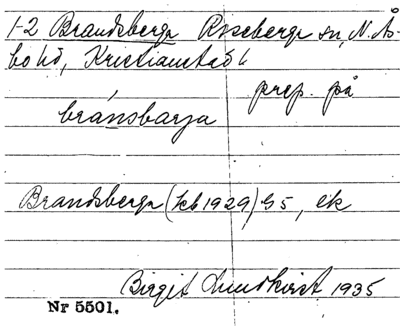 1-2 Brandsberga Rosseberga sn, N. Ås-
bo hd, Kristianstad l.
prep. på
bránsbarja
Brandsberga (kb 1929) G5, ek
Birgit Lundkvist 1935
Nr 5501.